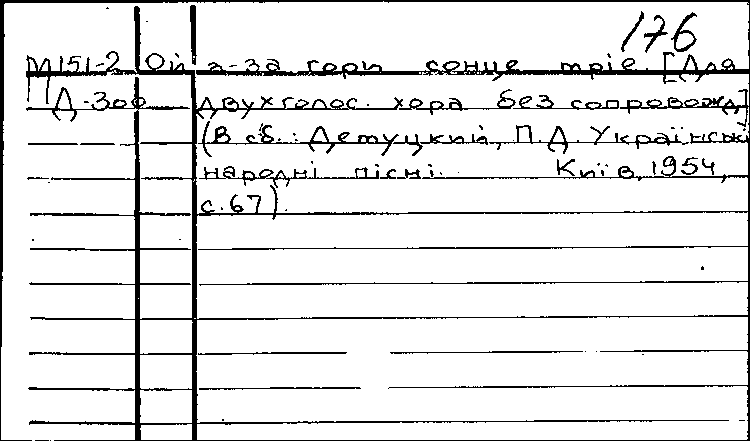 176
М151-2 Ой з-за гори сонце тріе. [Для
Д-300 двухголос. хора без сопровожд]
(В сб.: Демуцкий, П.Д. Українські
народні пісні. Київ, 1954,
с.67).